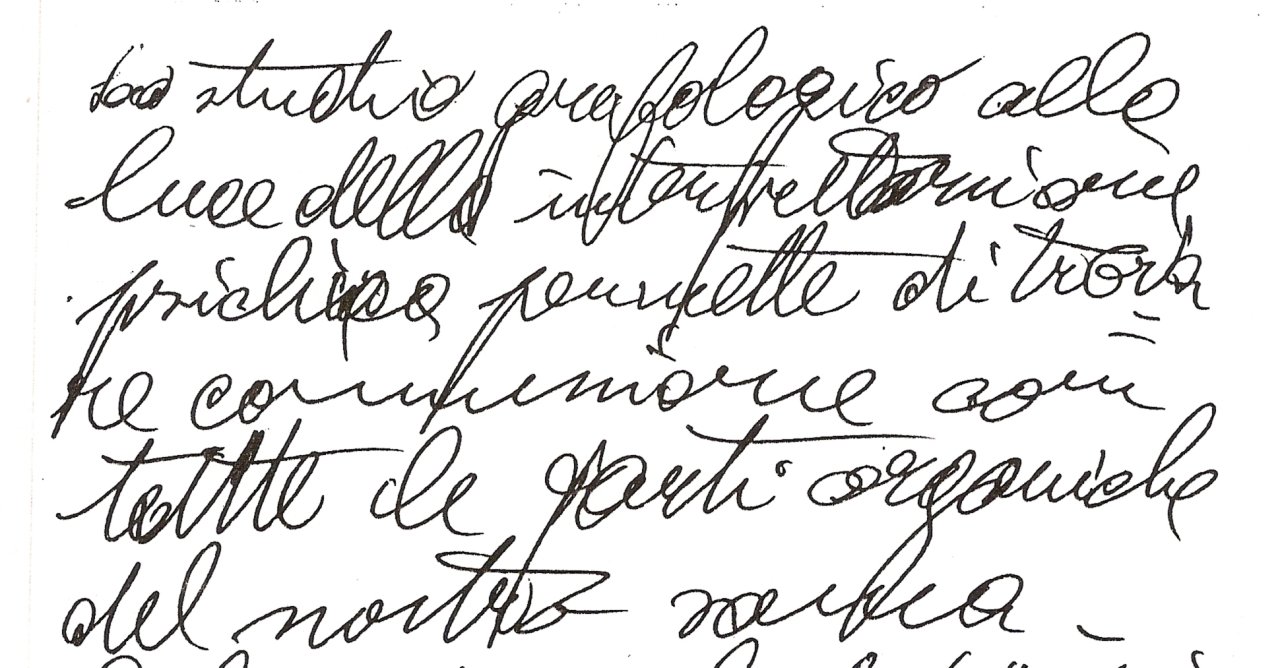 Lo studio grafologico alla
luce della interpretazione
psichica permette di trova
=
re comunione con
tutte le parti organiche
del nostro